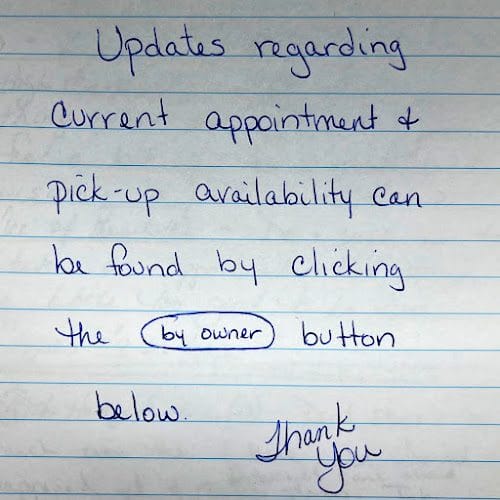 Updates regarding
current appointment &
pick-up availability can
be found by clicking
the by owner button
below.
Thank
You